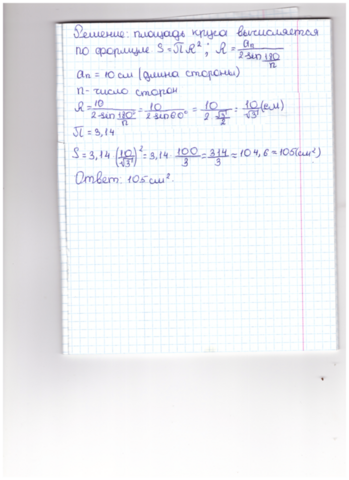 Решение: площадь круга вычисляется
по формуле S=ПR²; R = aₙ / 2 sin 180/n
aₙ = 10 см (длина стороны)
n - число сторон
R = 10 / 2 sin 180°/n = 10 / 2 sin 60° = 10 / 2·√3/2 = 10/√3 (см)
П = 3,14
S = 3,14 (10/√3)² = 3,14 · 100/3 = 314/3 = 104,6 = 105 (см²)
Ответ: 105 см².